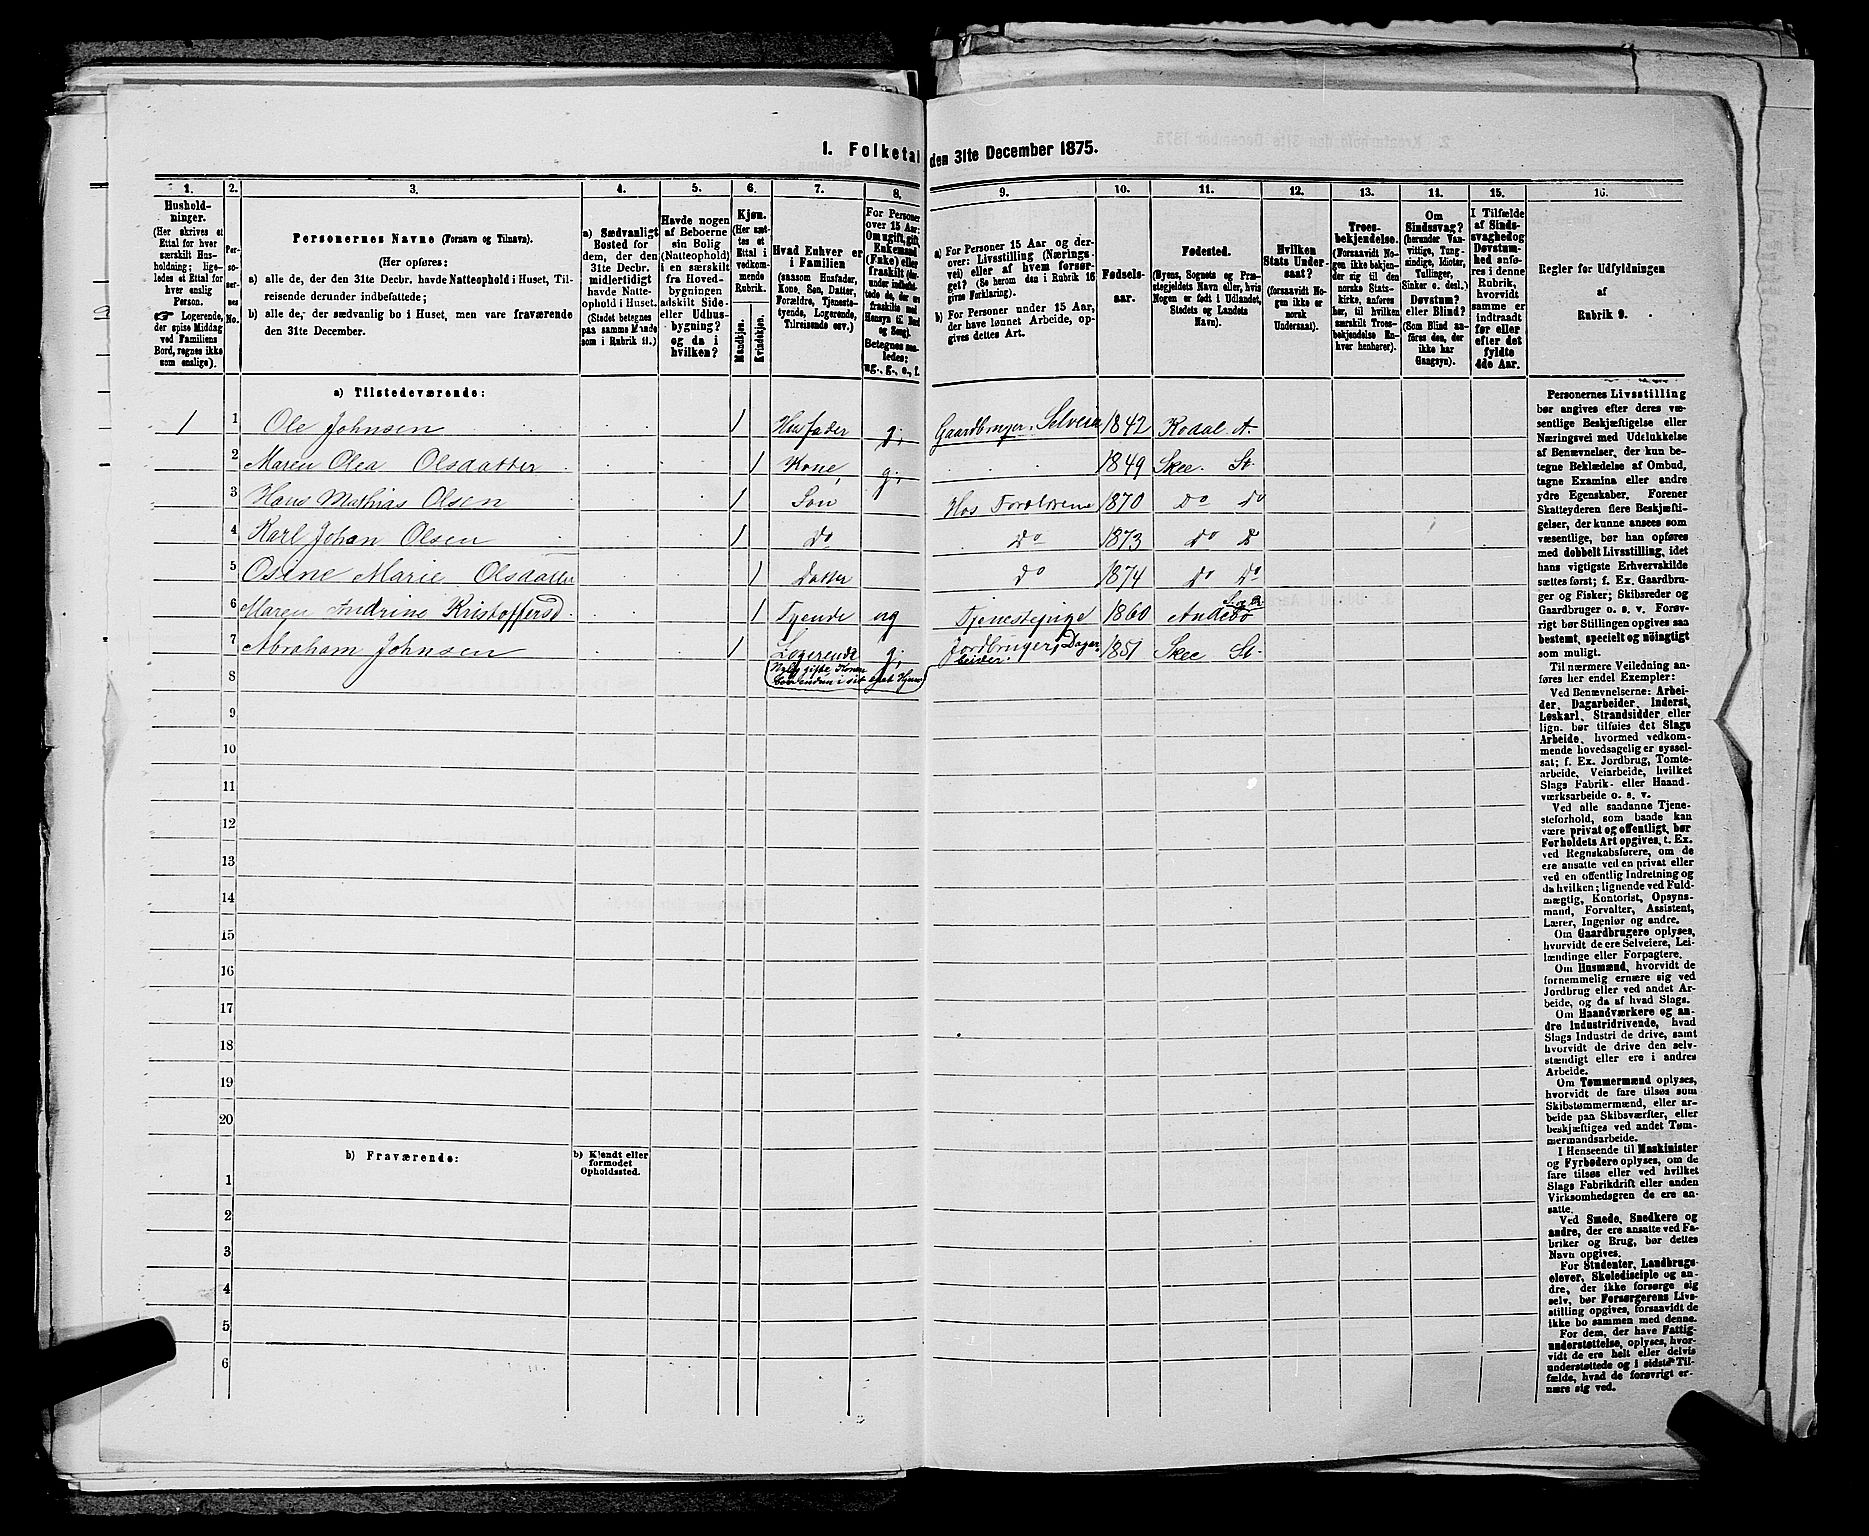 1. Folketal den 31te December 1875.
1. 2. 3. 4. 5. 6. 7. 8. 9. 10. 11. 12. 13. 14. 15. 16.
Hushold-
ninger.
(Her skrives et
Ettal for hver
særskilt Hus-
holdning; lige-
ledes et Ettal for
hver enslig
Person.
Logerende,
der spise Middag
ved Familiens
Bord, regnes ikke
som enslige).
Per-
so-
ner-
nes
No.
Personernes Navne (Fornavn og Tilnavn).
(Her opføres:
a) alle de, der den 31te Decbr. havde Natteophold i Huset, Til-
reisende derunder indbefattede;
b) alle de, der sædvanlig bo i Huset, men vare fraværende
den 31te December.
a) Sædvanligt
Bosted for
dem, der den
31te Decbr.
midlertidigt
havde Natte-
ophold i Huset.
(Stedet betegnes
paa samme Maade
som i Rubrik 11.)
Havde nogen
af Beboerne
sin Bolig
(Natteophold)
i en særskilt
fra Hoved-
bygningen
adskilt Side-
eller Udhus-
bygning?
og da i
hvilken?
Kjøn.
(Her sæt-
tes et
Ettal i
vedkom-
mende
Rubrik.
Mandkjøn.
Kvindekjøn.
Hvad Enhver er
i Familien
(saasom Husfader,
Kone, Søn, Datter,
Forældre, Tjeneste-
tyende, Logerende,
Tilreisende osv.)
For Personer
over 15 Aar:
Om ugift, gift,
Enkemand
(Enke) eller
fraskilt
Betegnes saa-
ledes:
ug., g., e., f.
a) For Personer 15 Aar og der-
over: Livsstilling (Nærings-
vei) eller af hvem forsør-
get? (Se herom den i Rubrik 16
givne Forklaring).
b) For Personer under 15 Aar,
der have lønnet Arbeide, op-
gives dettes Art.
Fødsels-
aar.
Fødested.
(Byens, Sognets og Præ-
stegjeldets Navn eller, hvis
Nogen er født i Udlandet,
Stedets og Landets
Navn).
Hvilken
Stats Under-
saat?
(forsaavidt No-
gen ikke er
norsk
Undersaat).
Troes-
bekjendelse.
(Forsaavidt No-
gen ikke bekjen-
der sig til den
norske Stats-
kirke, anføres
her, til hvilken
særskilt Troes-
bekjendelse En-
hver henhører).
Om
Sindssvag?
(herunder Van-
vittige, Tung-
sindige, Idioter,
Tullinger,
Sinker o. desl.)
Døvstum?
eller Blind?
(Som Blind an-
føres den, der
ikke har
Gangsyn).
I Tilfælde
af Sinds-
svaghed og
Døvstum-
hed anfø-
res i denne
Rubrik,
hvorvidt
samme er
indtraadt
før eller
efter det
fyldte
4de Aar.
Regler for Udfyldningen
af
Rubrik 9.
a) Tilstedeværende:
1 1 Ole Johnsen 1 Husfader g. Gaardbruger, Selveier 1842 Kodal A.
2 Maren Olea Olsdatter 1 Kone g. 1849 Skee. St.
3 Hans Mathias Olsen 1 Søn Hos Forældrene 1870 Do Do
4 Karl Johan Olsen 1 Do Do 1873 Do D
5 Osine Marie Olsdatter 1 Datter Do 1874 Do Do
6 Maren Andrine Kristoffersd. 1 Tyende ug Tjenestepige 1860 Andebo
7 Abraham Johnsen 1 Logerende g. Jordbruger, Dagar-
beider. 1851 Skee St.
8
9
10
11
12
13
14
15
16
17
18
19
20
b) Fraværende:
b) Kjendt eller
formodet
Opholdssted.
1
2
3
4
5
6
Personernes Livsstilling
bør angives efter deres væ-
sentlige Beskjæftigelse eller
Næringsvei med Udelukkelse
af Benævnelser, der kun be-
tegne Beklædelse af Ombud,
tagne Examina eller andre
ydre Egenskaber. Forener
Skatteyderen flere Beskjæfti-
gelser, der kunne ansees som
væsentlige, bør han opføres
med dobbelt Livsstilling, idet
hans vigtigste Erhvervskilde
sættes først; f. Ex. Gaardbru-
ger og Fisker; Skibsreder og
Gaardbruger o. s. v. Forøv-
rigt bør Stillingen opgives saa
bestemt, specielt og nøiagtigt
som muligt.
Til nærmere Veiledning an-
føres her endel Exempler:
Ved Benævnelserne: Arbei-
der, Dagarbeider, Inderst,
Løskarl, Strandsidder eller
lign. bør tilføies det Slags
Arbeide, hvormed vedkom-
mende hovedsagelig er syssel-
sat; f. Ex. Jordbrug, Tomte-
arbeide, Veiarbeide, hvilket
Slags Fabrik- eller Haand-
værksarbeide o. s. v.
Ved alle saadanne Tjene-
steforhold, som baade kan
være privat og offentligt, bør
Forholdets Art opgives, t. Ex.
ved Regnskabsførere, om de
ere ansatte ved en privat eller
ved en offentlig Indretning og
da hvilken; lignende ved Fuld-
mægtig, Kontorist, Opsyns-
mand, Forvalter, Assistent,
Lærer, Ingeniør og andre.
Om Gaardbrugere oplyses,
hvorvidt de ere Selveiere, Lei-
lændinge eller Forpagtere.
Om Husmænd, hvorvidt de
fornemmelig ernære sig ved
Jordbrug eller ved andet Ar-
beide, og da af hvad Slags.
Om Haandværkere og an-
dre Industridrivende, hvad
Slags Industri de drive, samt
hvorvidt de drive den selv-
stændigt eller ere i andres
Arbeide.
Om Tømmermænd oplyses,
hvorvidt de fare tilsøs som
Skibstømmermænd, eller ar-
beide paa Skibsværfter, eller
beskjæftiges ved andet Tøm-
mermandsarbeide.
I Henseende til Maskinister
og Fyrbødere oplyses, om de
fare tilsøs eller ved hvilket
Slags Fabrikdrift eller anden
Virksomhedsgren de ere an-
satte.
Ved Smede, Snedkere og
andre, der ere ansatte ved Fa-
briker og Brug, bør dettes
Navn opgives.
For Studenter, Landbrugs-
elever, Skoledisciple og an-
dre, der ikke forsørge sig
selv, bør Forsørgerens Livs-
stilling opgives, forsaavidt de
ikke bo sammen med denne.
For dem, der have Fattig-
understøttelse, oplyses, hvor-
vidt de ere helt eller delvis
understøttede og i sidste Til-
fælde, hvad de forøvrigt er-
nære sig ved.